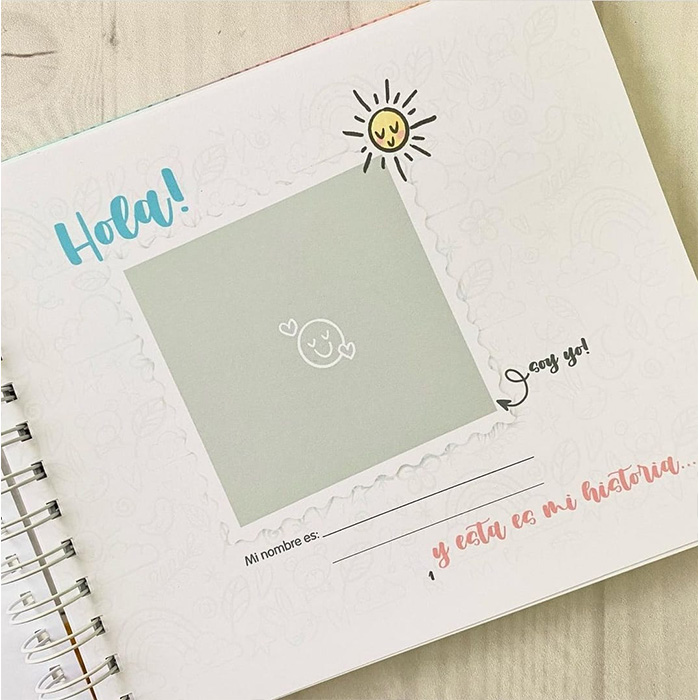 Hola!
soy yo!
Mi nombre es:
y esta es mi historia...
1